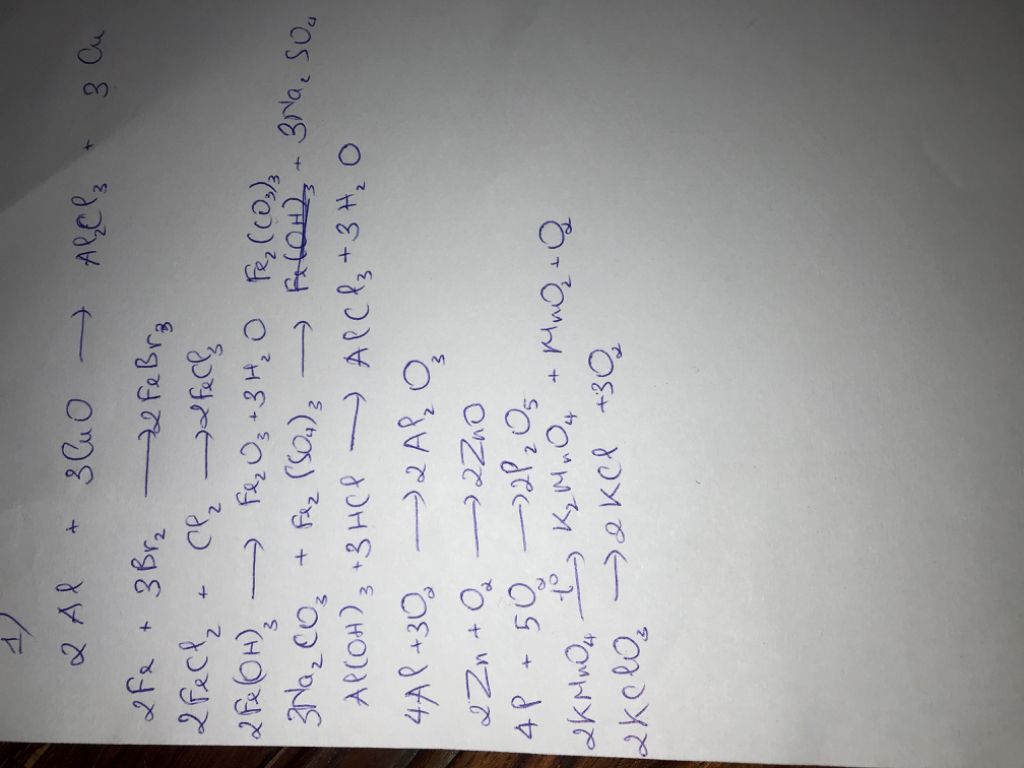 1)
2 Al + 3CuO → Al₂Cl₃ + 3 Cu
2Fe + 3Br₂ → 2FeBr₃
2FeCl₂ + Cl₂ → 2FeCl₃
2Fe(OH)₃ → Fe₂O₃ + 3H₂O
Fe₂(CO₃)₃
3Na₂CO₃ + Fe₂(SO₄)₃ → Fe(OH)₃ + 3Na₂SO₄
Al(OH)₃ + 3HCl → AlCl₃ + 3H₂O
4Al + 3O₂ → 2Al₂O₃
2Zn + O₂ → 2ZnO
4P + 5O₂ → 2P₂O₅
2KMnO₄ t° → K₂MnO₄ + MnO₂ + O₂
2KClO₃ → 2KCl + 3O₂